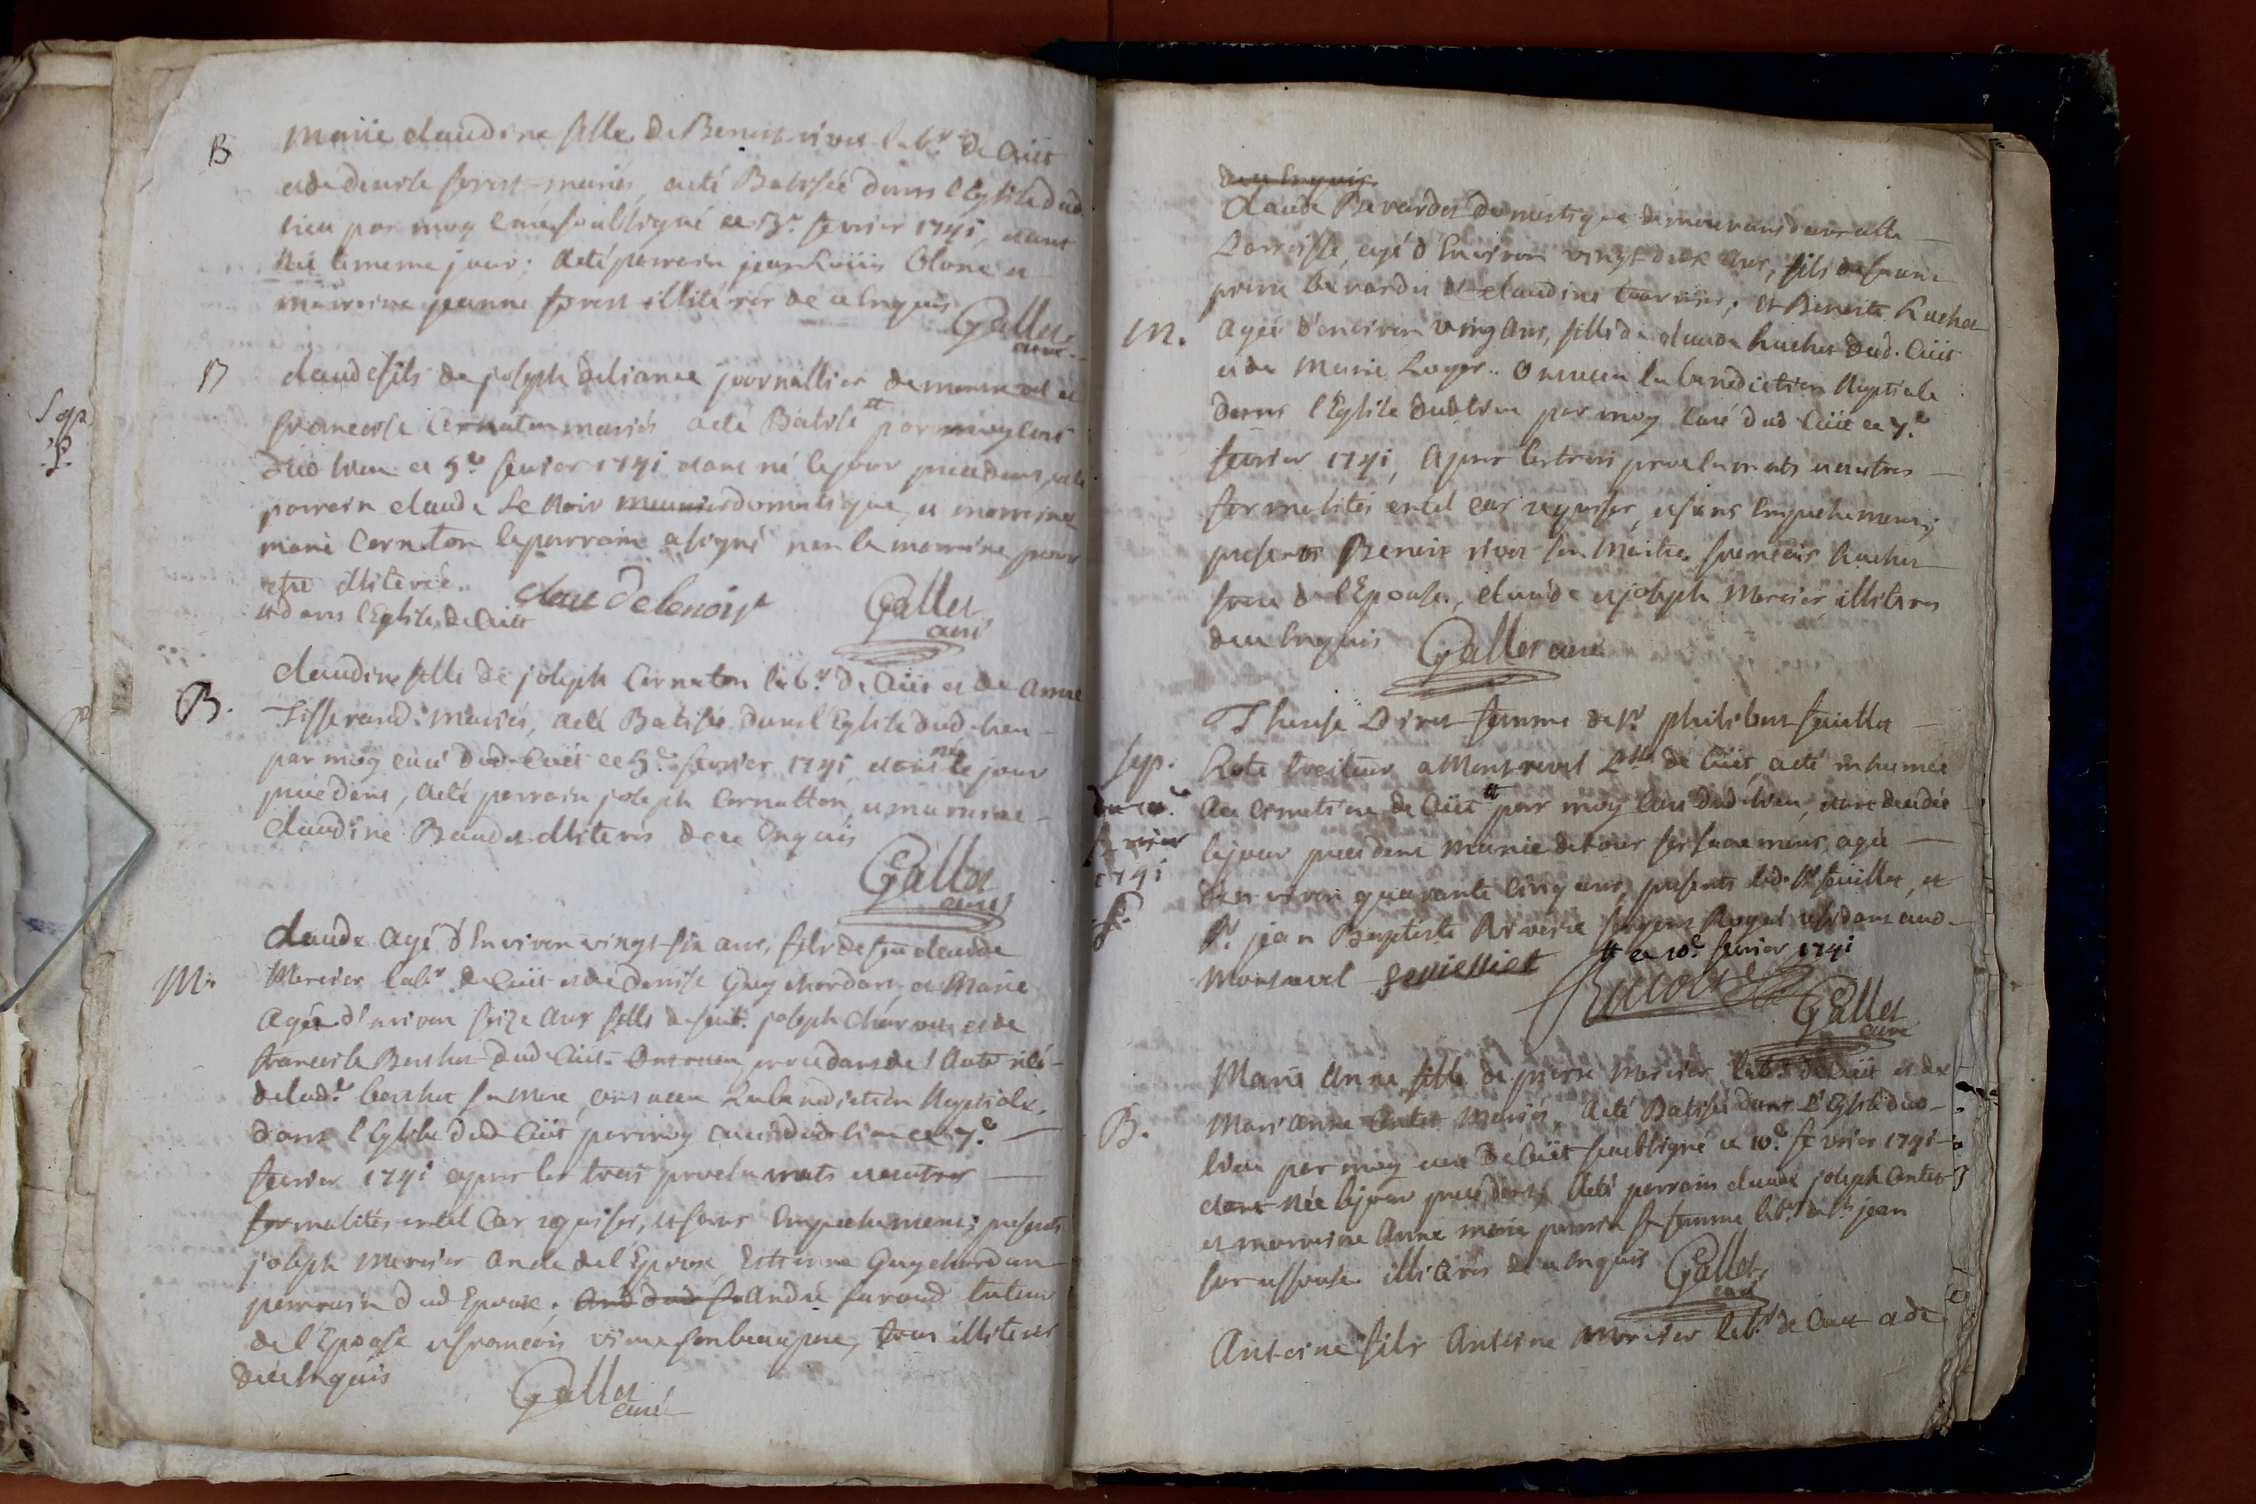 B
Marie claudine fille de Benoit rivet lab.r de Cüet
et de denise forest mariés, a eté Batisée dans l'Eglise dud.
lieu par moy Curé soubsigné ce 3.e fevrier 1741, etant
née le meme jour; a eté parrain jean Loüis
marraine jeanne forest illiterés de ce Enquis
Gallet
curé
B
claude fils de joseph deliance journallier demeurant et
francoise Cornaton mariés a eté Batisé # par moy Curé
dud lieu ce 5.e fevrier 1741 etant né le jour precedent, a eté
parrain claude Le Noir domestique, et marraine
marie Cornaton le parrain a signé non la marraine pour
etre illiterée..
# dans l'Eglise de Cüet
claude lenoir
Gallet
curé
B.
claudine fille de joseph Cornaton lab.r de Cüet et de Anne
Tisserand mariés, a eté Batisée dans l'Eglise dud. lieu
par moy curé dud. Cüet ce 5.e fevrier 1741, etant née le jour
precedent, a eté parrain joseph Cornatton, et marraine
claudine Baudet illiterés de ce Enquis
Gallet
curé
M.
claude agé d'Environ vingt six ans, fils de feu claude
Mercier lab.r de Cüet et de denise Guychardan, et Marie
agée d'environ seize ans fille de feu joseph Charvet et de
francoise Berthet dud. Cüet
de lad.e berthet sa Mere, ont receu La benediction Nuptiale
dans l'Eglise dud. Cüet par moy curé dud. lieu ce 7.e
fevrier 1741 apres les trois proclamats et autres
formalités en tel Cas requises, et sans Empechement; presents
joseph Mercier oncle de l'Epoux Estienne Guychardan
parrain dud Epoux, André turaud tuteur
de l'Epouse et francois son beaupere, tous illiterés
de ce Enquis
Gallet
curé
de ce Enquis.
M.
Claude Bavardet domestique demeurant dans cette
Parroisse, agé d'Environ vingt deux ans, fils de feu
pierre bavardet et claudine tournier; et Benoite Ruchet
agée d'environ vingt ans, fille de claude Ruchet dud. Cüet
et de Marie Loyer.. ont receu la benediction Nuptiale
dans l'Eglise dud lieu par moy Curé dud Cüet ce 7.e
fevrier 1741, apres les trois proclamats et autres
formalités en tel cas requises, et sans Empechement;
presents Benoit rivet son Maitre, francois Ruchet
frere de l'Epouse, claude et joseph Mercier illiterés
de ce Enquis
Gallet curé
Sep.
du 10.e
fevrier
1741
Therese femme de S.r philibert feuillet
a Montrevel P.sse de Cüet, a eté inhumée
au cimetiere de Cüet # par moy Curé dud lieu, etant decedée
le jour precedent munie de tous ses sacremens, agée
d'environ quarante Cinq ans, presents led. S.r feuillet, et
S.r jean Baptiste Riviere sergent Royal residant aud.
Montrevel
# ce 10.e fevrier 1741
Gallet
curé
B.
Marie Anne fille de pierre Mercier lab.r de Cüet et de
Marianne Cantet Mariés, a eté Batisée dans l'Eglise dud
lieu par moy curé de Cüet soubsigné ce 10.e fevrier 1741
etant née le jour precedent; a eté parrain claude joseph Cantet
et marraine Anne marie perrin sa femme lab.r de S.t jean
sur illiterés de ce enquis
Gallet
curé
Antoine fils Antoine Mercier lab.r de Cuet et de